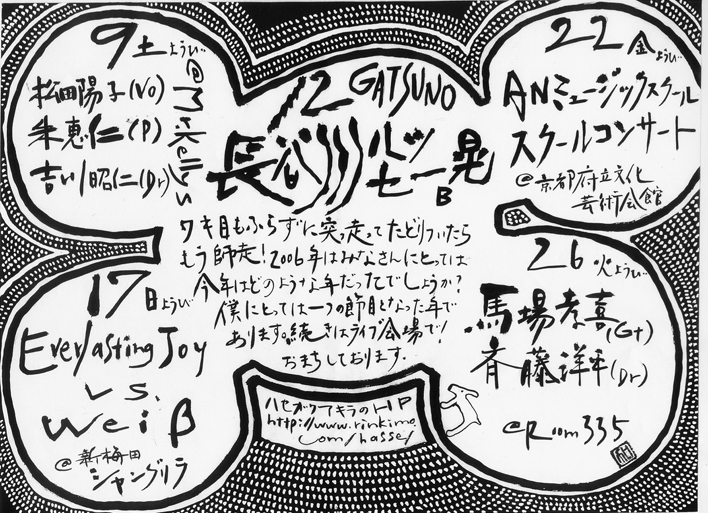 9土ようび
@Mrkelly's
松田陽子(Vo)
朱恵仁(P)
吉川昭仁(Dr)
12 GATSUNO
長谷川ハッセー晃
B
22金ようび
ANミュージックスクール
スクールコンサート
@京都府立文化
芸術会館
ワキ目もふらずに突っ走ってたどりついたら
もう師走!2006年はみなさんにとっては
今年はどのような年だったでしょうか?
僕にとっては一つの節目となった年で
あります。続きはライブ会場で!
おまちしております。
17日ようび
Everlasting Joy
vs.
Weiβ
@新梅田
シャングリラ
26火ようび
馬場孝喜(Gt)
斉藤洋平(Dr)
@Room335
ハセガワアキラのHP
http://www.rinkimo
.com/hasse/